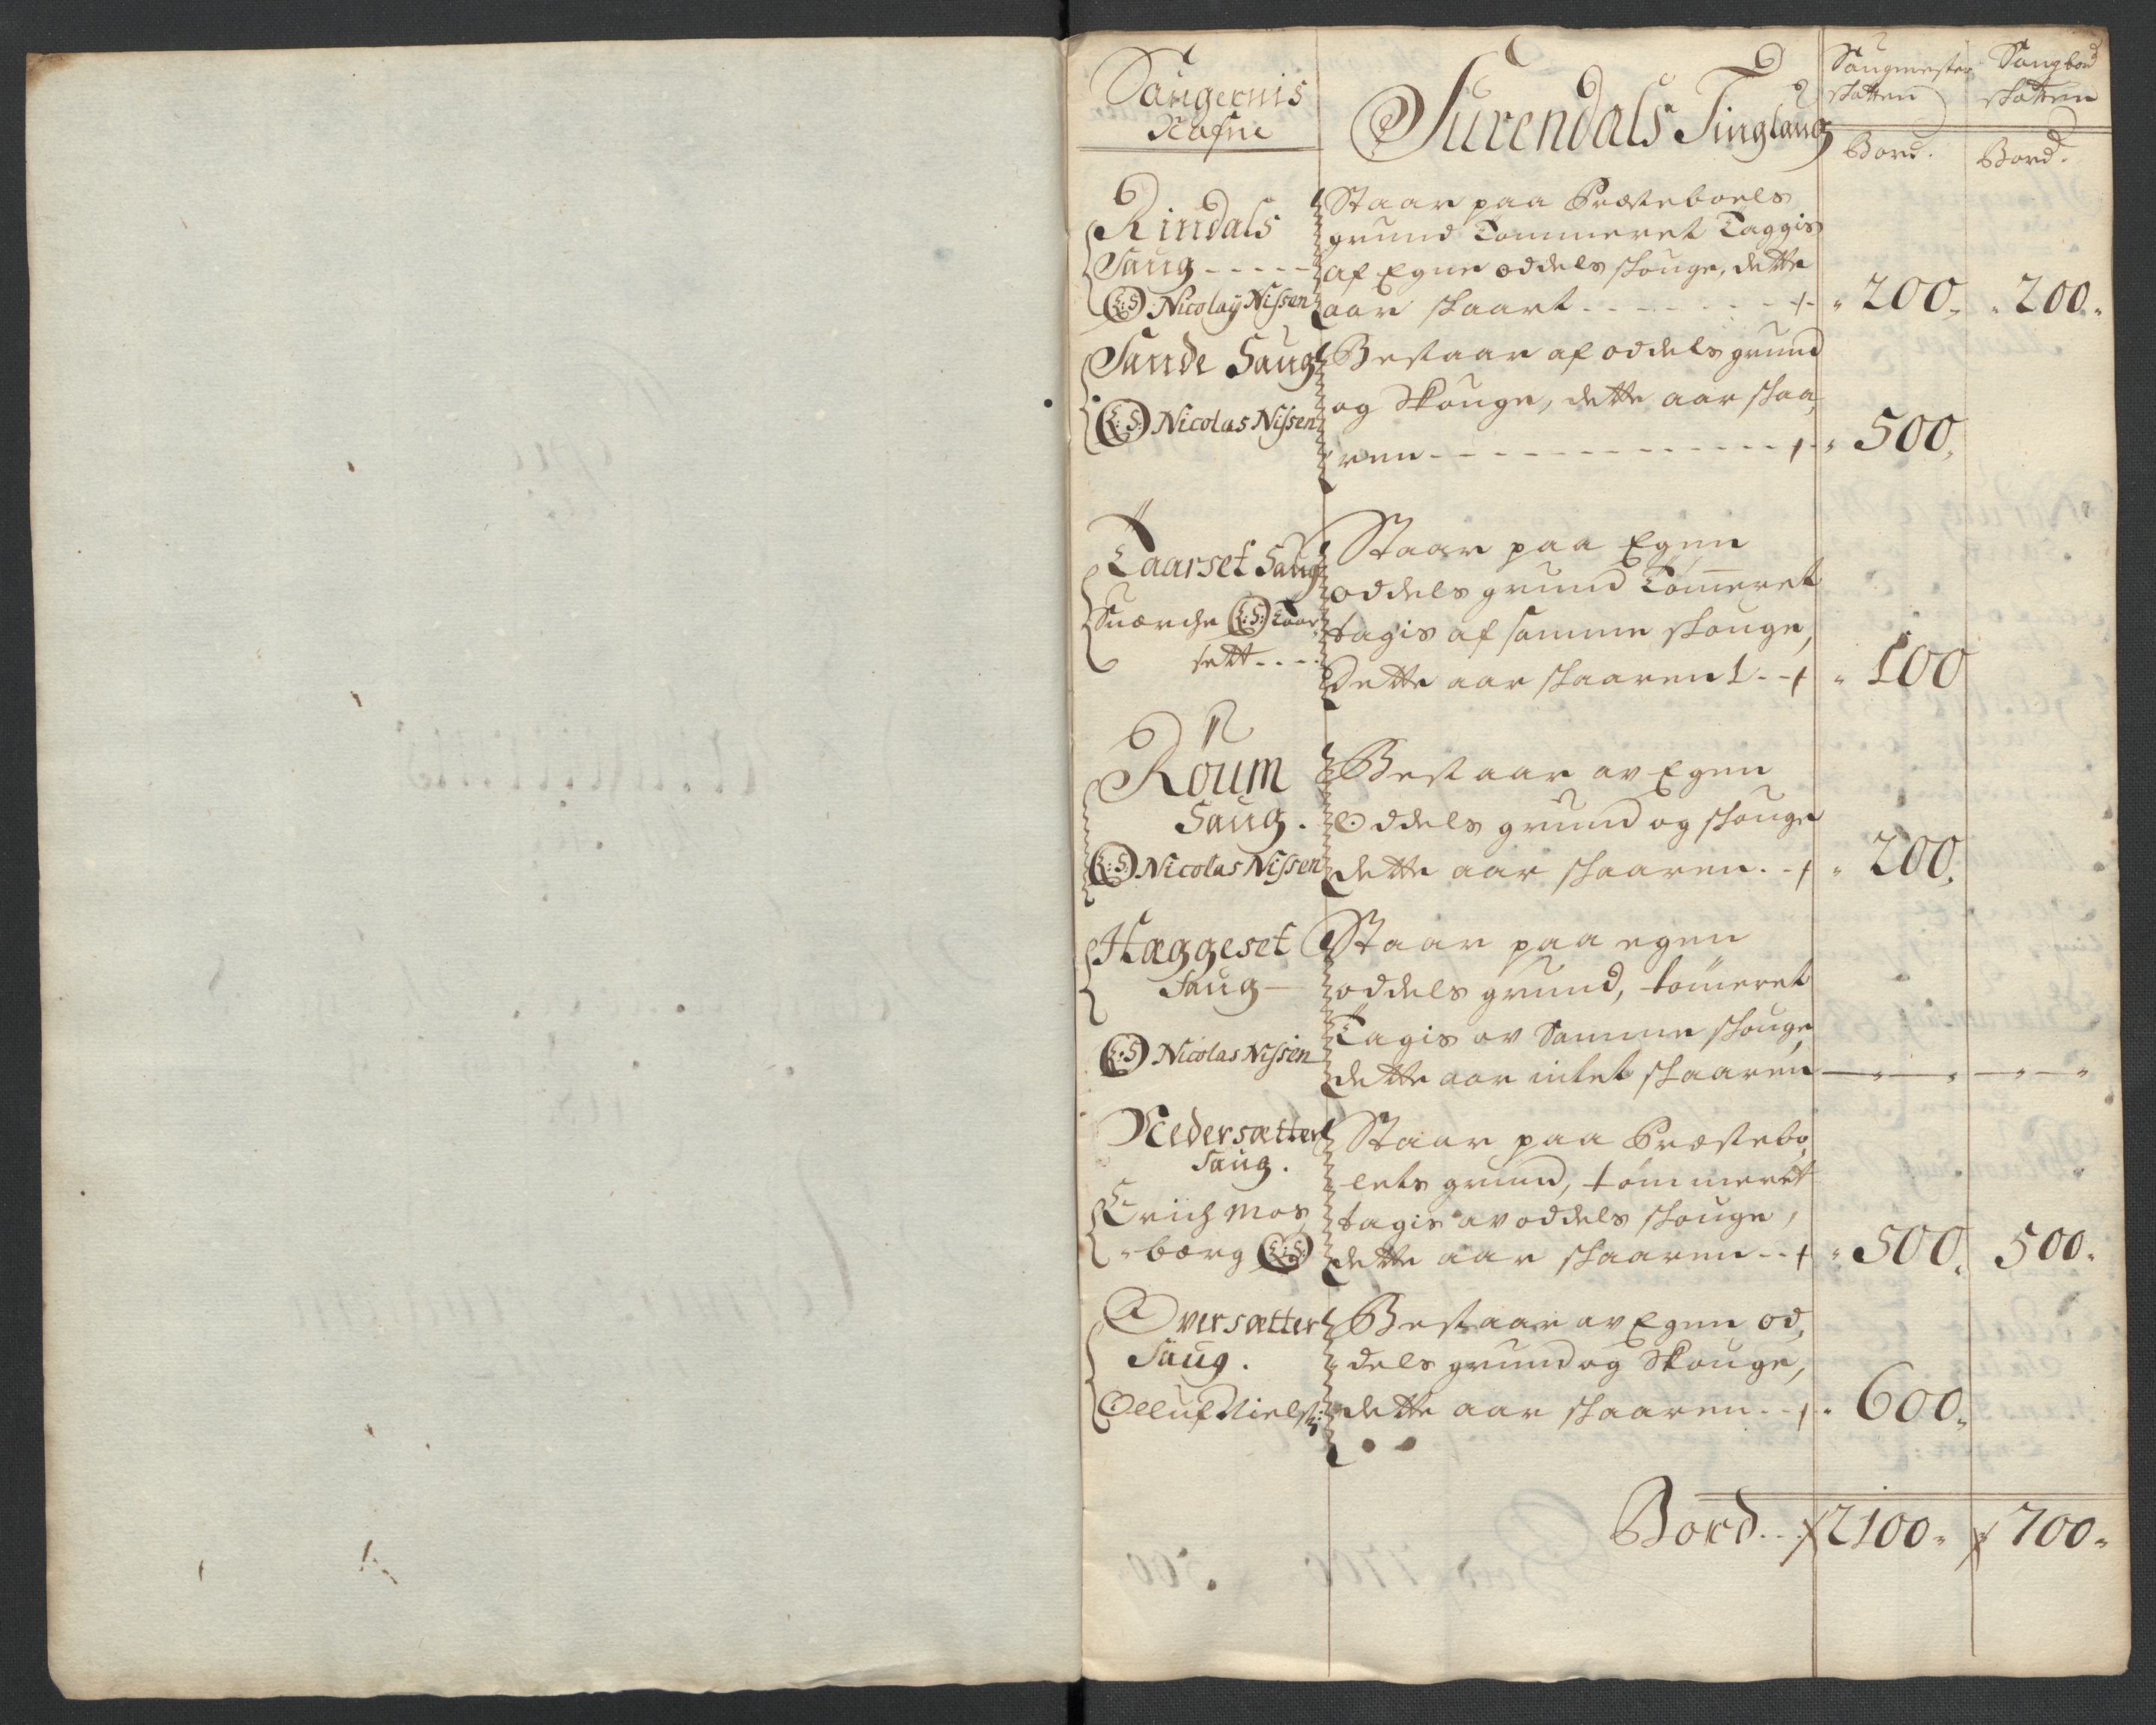 Saugernis
Nafne
Surendals Tinglaug
Saugmester
skatten
Saugbord
skatten
Bord.
Bord.
Rindals
Saug - - - - -
L:S Nicolaÿ Nissen
Staar paa Præsteboels
grund Tømmeret Taggis
af Egne oddels skouge, dette
aar skaart - - - - - - - +
200. 200.
Sande Saug
L:S: Nicolas Nissen
Bestaar af oddels grund
og Skouge, dette aar skaa
ren - - - - - - - - - - - - +
500.
Taarset Saug
Snorche L:S: Taar
sett - - - -
Staar paa Egen
oddels grund Tømeret
tagis af samme skouge,
Dette aar skaaren 1 - - +
100
Røum
Saug.
L:S: Nicolas Nissen
Bestaar av Egen
Oddels grund og skouge
dette aar skaaren. - +
200.
Hæggeset
Saug
L:S Nicolas Nissen
Staar paa egen
oddels grund, tømeret
Tagis av Samme skouge
dette aar intet skaaren
Nedersætter
Saug.
Erich Mos
bærg L:S:
Staar paa Præstebo
lets grund, tømmeret
tagis av oddels skouge,
dette aar skaaren - - +
500. 500.
Oversætter
Saug.
Olluf Nielss:
Bestaar av Egen od
dels grund og Skouge,
dette aar skaaren - - +
600.
Bord - - 2100. 700.